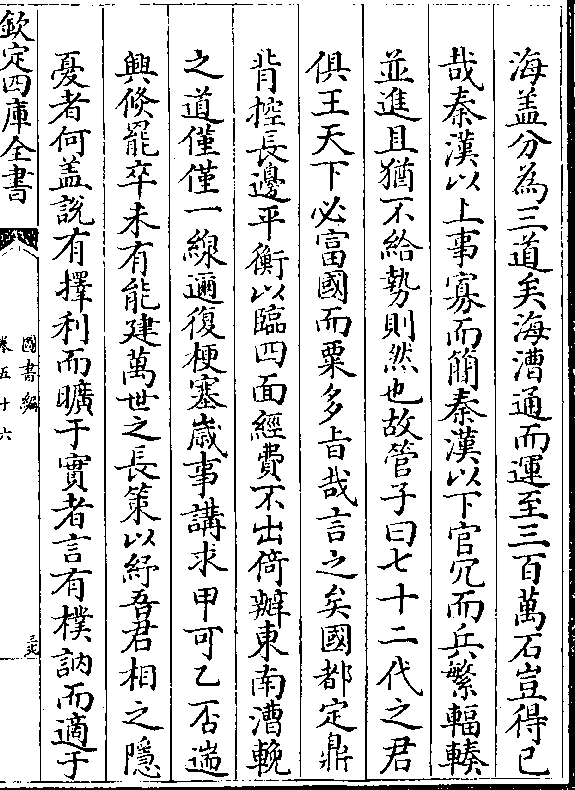 海盖分為三道矣海漕通而運至三百萬石豈得已
哉秦漢以上事寡而簡秦漢以下官冗而兵繁輻輳
並進且猶不給勢則然也故管子曰七十二代之君
俱王天下必富國而粟多旨哉言之矣國都定鼎
背控長邊平衡以臨四面經費不出倚辦東南漕輓
之道僅僅一線邇復梗塞歳事講求甲可乙否遄
興倐罷卒未有能建萬世之長策以紓吾君相之隱
憂者何盖說有擇利而曠于實者言有樸訥而適于
欽定四庫全書
圖書編
卷五十六